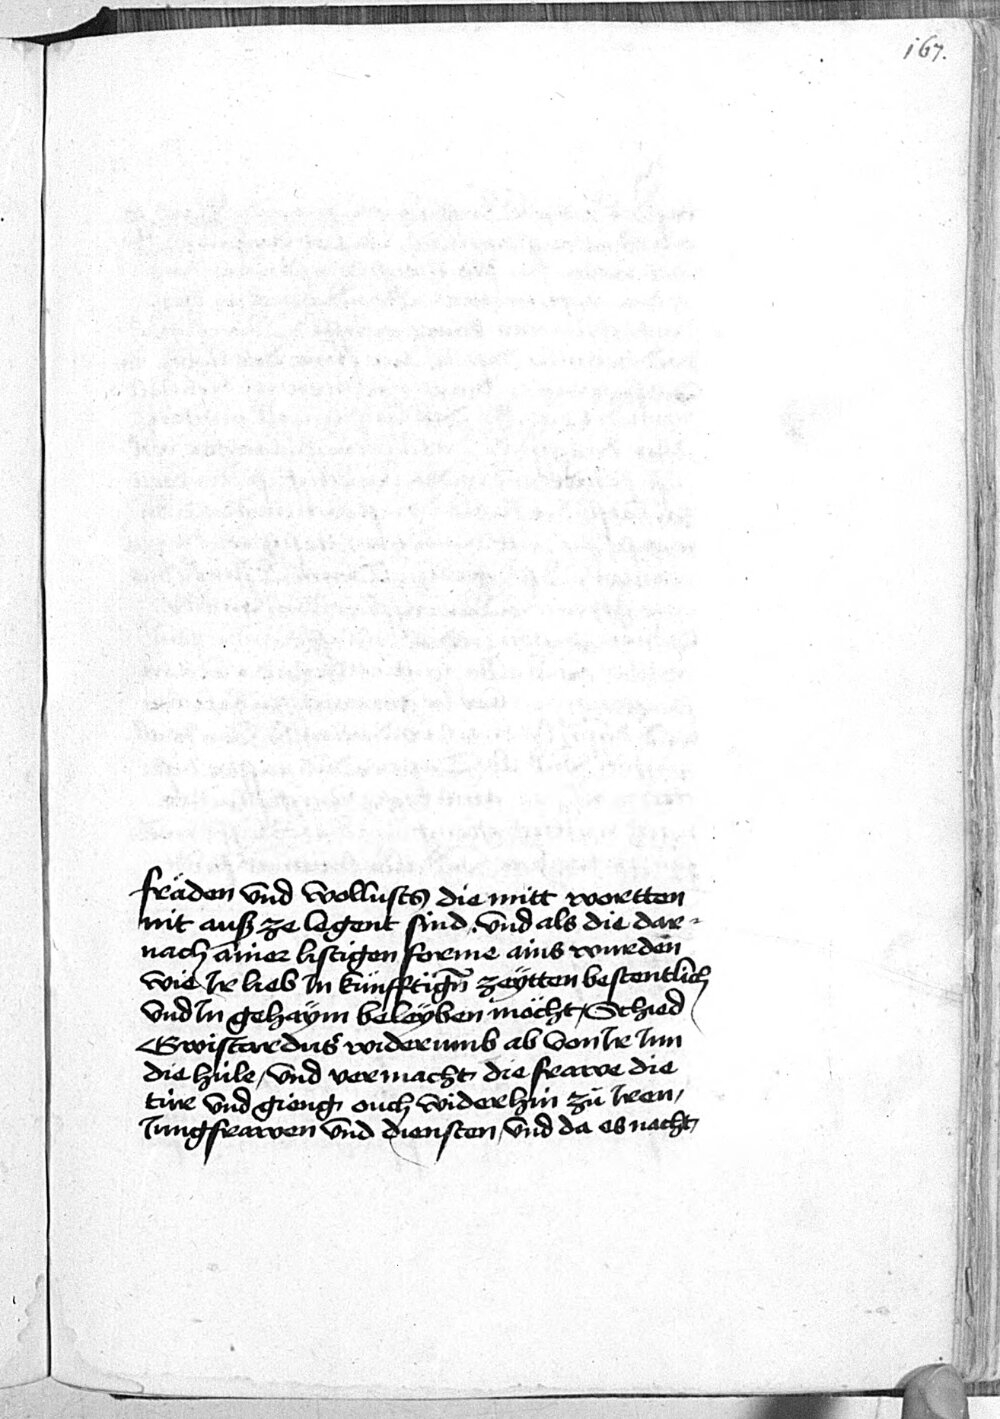 167.
fräden vnd wollusts die mitt wortten
nit auß ze legent sind, vnd als die dar-
nach ainer listigen forme ains wurden
wie Ir lieb In künfftign̄ zeÿtten bestentlich
vnd In gehaÿm beleÿben möcht / Schied
Gwistardus widerumb ab von Ir Inn
die hüle / vnd vermacht die frawe die
tür vnd gieng ouch wider hin zů Iren /
Iungfrawen vnd diensten / vnd da es nacht